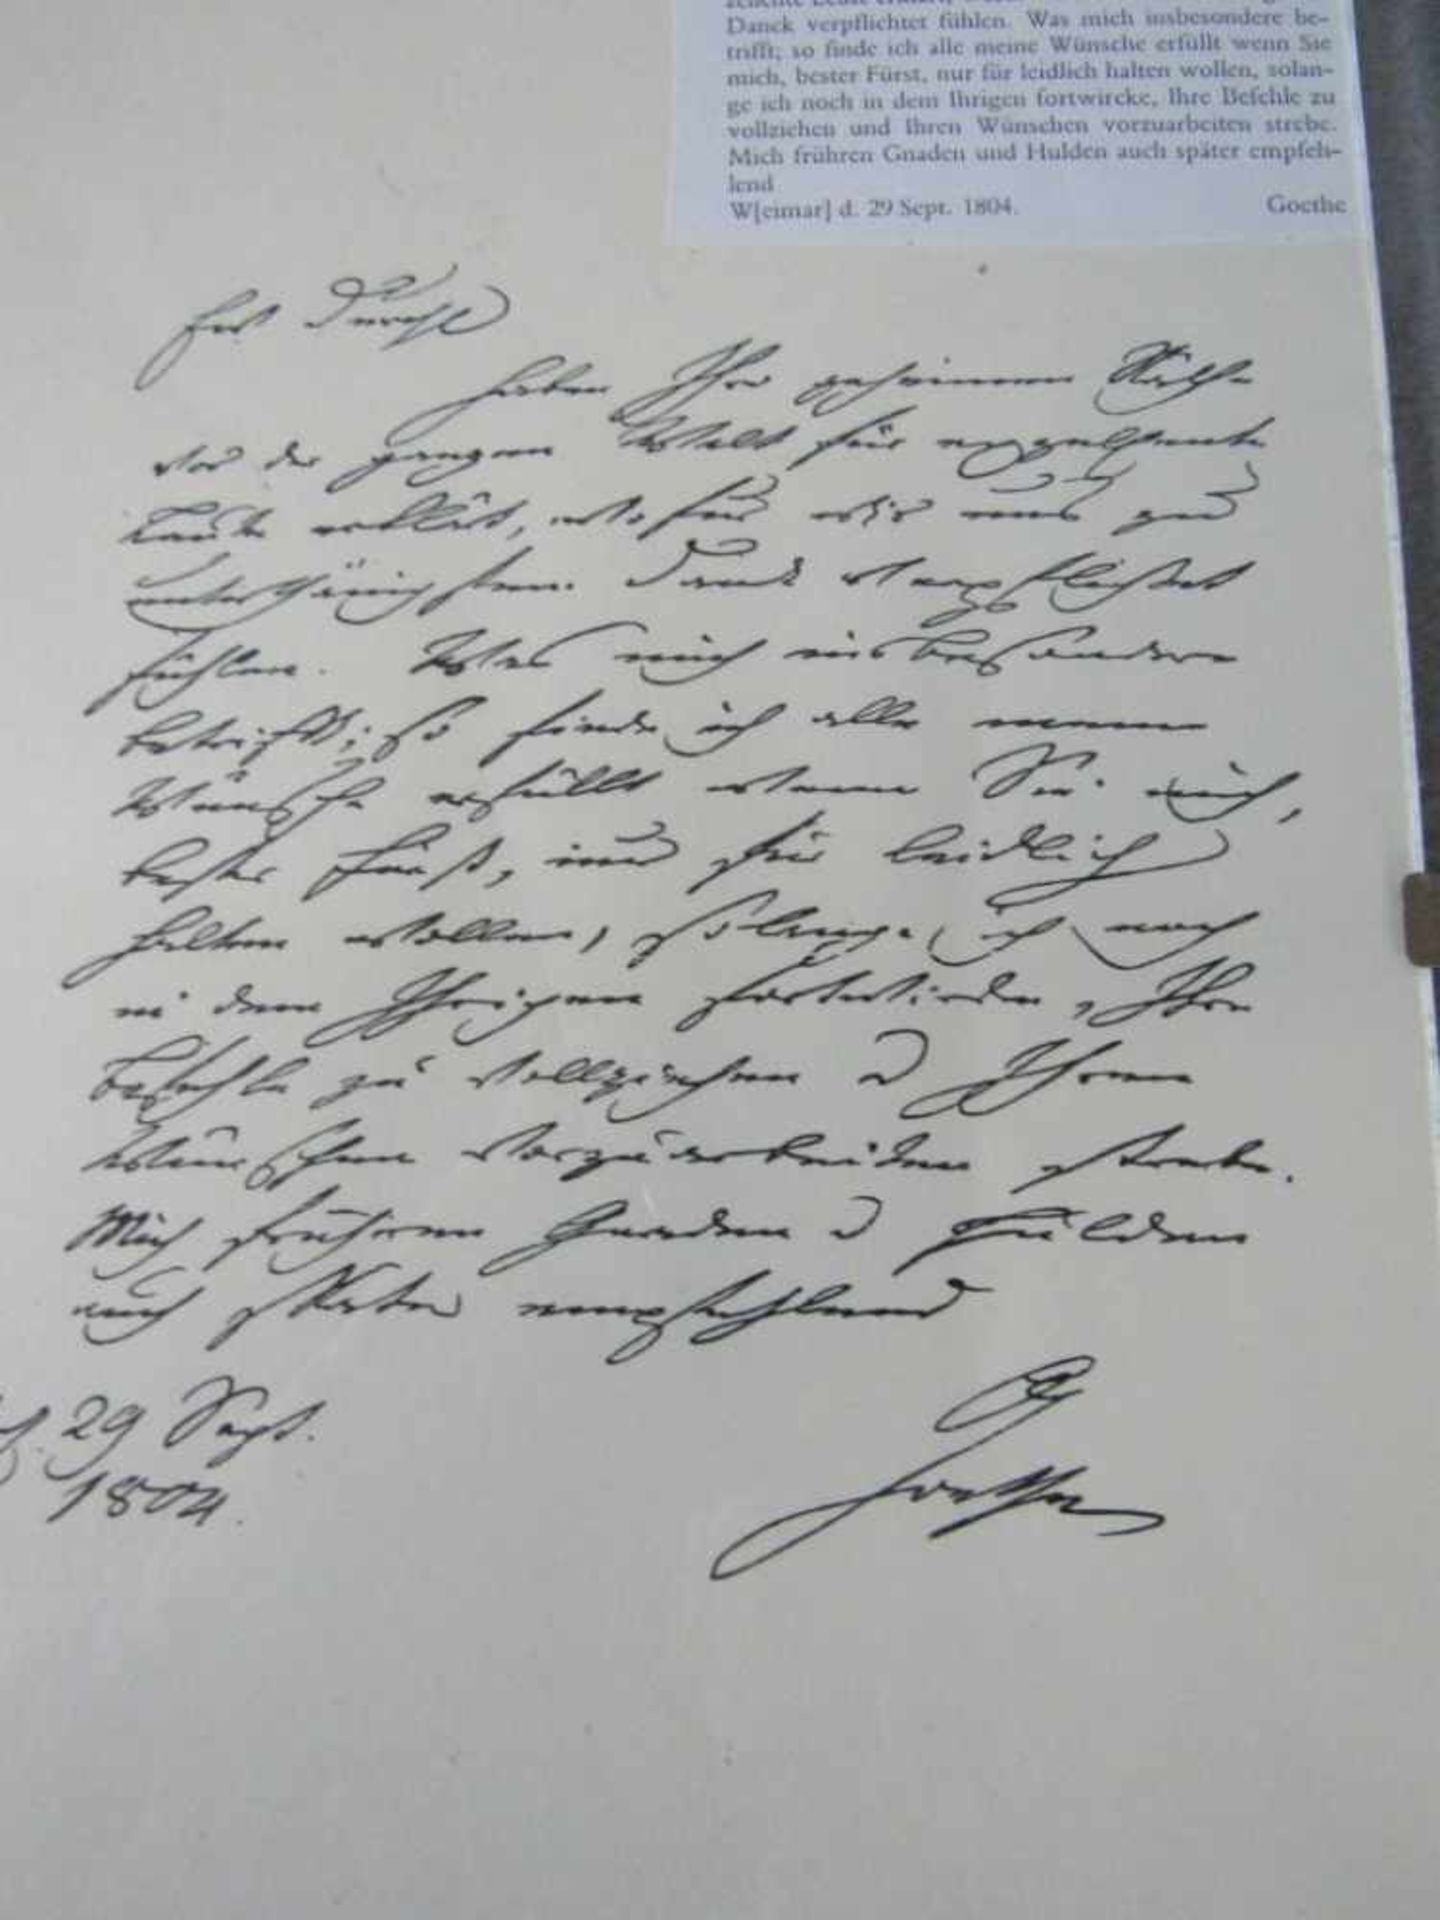 Danck verpflichtet fühlen. Was mich insbesondere be-
trifft; so finde ich alle meine Wünsche erfüllt wenn Sie
mich, bester Fürst, nur für leidlich halten wollen, solan-
ge ich noch in dem Ihrigen fortwircke, Ihre Befehle zu
vollziehen und Ihren Wünschen vorzuarbeiten strebe.
Mich frühren Gnaden und Hulden auch später empfeh-
lend
W[eimar] d. 29 Sept. 1804. Goethe
Ew Durchl
haben Ihre geheimen Räthe
vor der ganzen Welt für exzellente
Leute erklärt, wofür wir uns zu
unterthänigstem Danck verpflichtet
fühlen. Was mich insbesondere
betrifft; so finde ich alle meine
Wünsche erfüllt wenn Sie mich,
bester Fürst, nur für leidlich
halten wollen, solange ich noch
in dem Ihrigen fortwircke, Ihre
Befehle zu vollziehen u Ihren
Wünschen vorzuarbeiten strebe.
Mich frühren Gnaden u Hulden
auch später empfehlend
d. 29 Sept.
1804.
Goethe